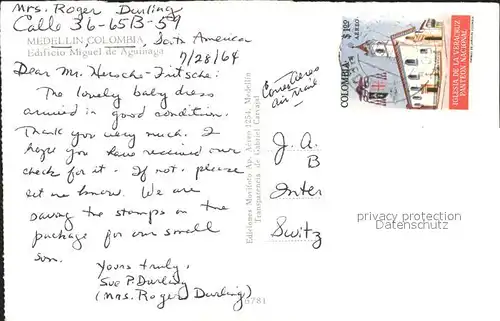 Mrs. Roger Durling
Calle 36-65B-59
MEDELLIN, COLOMBIA, South America
Edificio Miguel de Aguinaga
7/28/64
Dear Mr. Hersche-Fritsche:
The lovely baby dress
arrived in good condition.
Thank you very much. I
hope you have received our
check for it. If not, please
let me know. We are
saving the stamps on the
package for our small
son.
Yours truly,
Sue P. Durling
(Mrs. Roger Durling)
Ediciones Movifoto Ap. Aéreo 1254, Medellín
Transparencia de Gabriel Carvajal
6781
Correo Aereo
air mail
J. A.
B
Inter
Switz
COLOMBIA
$ 1.00
AEREO
IGLESIA DE LA VERACRUZ
PANTEON NACIONAL
privacy protection
Datenschutz